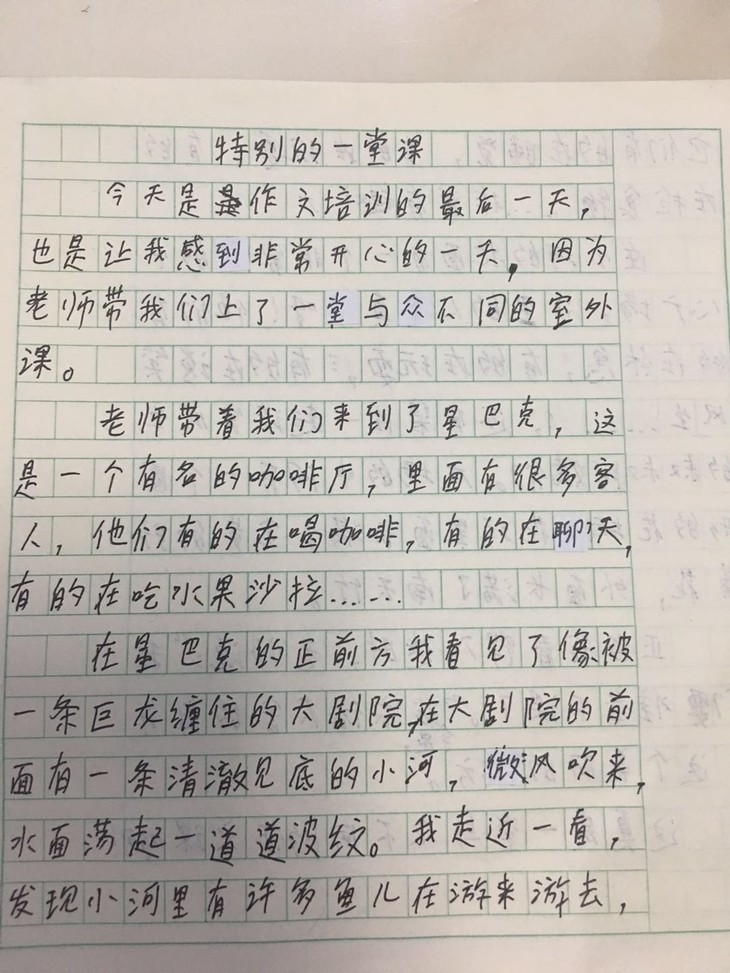 特别的一堂课
今天是作文培训的最后一天，
也是让我感到非常开心的一天，因为
老师带我们上了一堂与众不同的室外
课。
老师带着我们来到了星巴克，这
是一个有名的咖啡厅，里面有很多客
人，他们有的在喝咖啡，有的在聊天，
有的在吃水果沙拉……
在星巴克的正前方我看见了像被
一条巨龙缠住的大剧院，在大剧院的前
面有一条清澈见底的小河，微风吹来，
水面荡起一道道波纹。我走近一看，
发现小河里有许多鱼儿在游来游去，